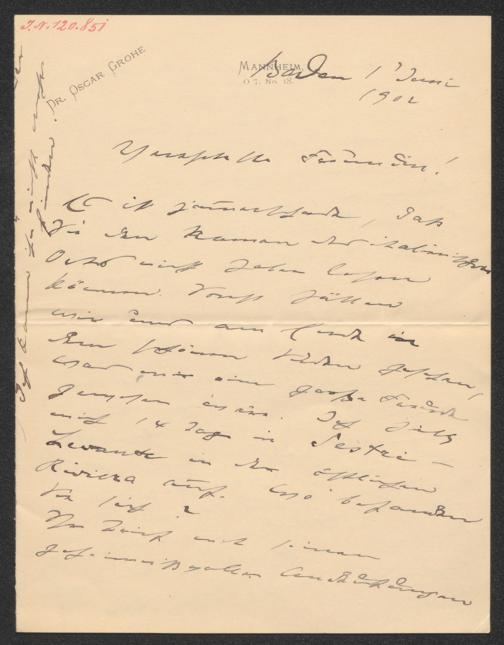 I.N. 120.851
DR. OSCAR GROHE
MANNHEIM,
O 7. No. 18.
Baden 1 Juni
1902
Verehrteste Freundin!
Es ist jammerschade, daß
Sie den Namen des italienischen
Ortes nicht haben lesen
können. Sonst hätten
wir uns am Ende in
dem schönen Süden gesehen,
was mir eine große Freude
gewesen wäre. Ich hielt
mich 14 Tage in Sestri-
Levante in der östlichen
Riviera auf. Wo befanden
Sie sich?
Ihr Brief mit seinen
geheimnißvollen Andeutungen